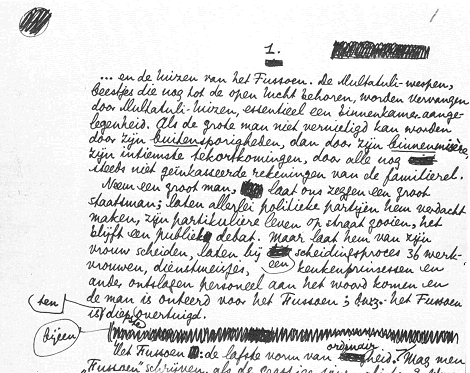 1.
... en de luizen van het Fussoen. De Multatuli-wespen,
beestjes die nog tot de open lucht behoren, worden vervangen
door Multatuli-luizen, essentieel een binnenkamer aange-
legenheid. Als de grote man niet vernietigd kan worden
door zijn buitensporigheden, dan door zijn binnenmisère
zijn intiemste tekortkomingen, door alle nog
steeds niet geïnkasseerde rekeningen van de familierel.
Neem een groot man, laat ons zeggen een groot
staatsman; laten allerlei politieke partijen hem verdacht
maken, zijn partikuliere leven op straat gooien, het
blijft een publiek debat. Maar laat hem van zijn
vrouw scheiden, laten bij scheidingsproces 36 werk-
vrouwen, dienstmeisjes, een keukenprinsessen en
ander ontslagen personeel aan het woord komen en
de man is onteerd voor het Fussoen; het Fussoen
ten
is diep overtuigd.
bijeen
Het Fussoen: de lafste vorm van heid. Mag men
"Fussoen" schrijven als de